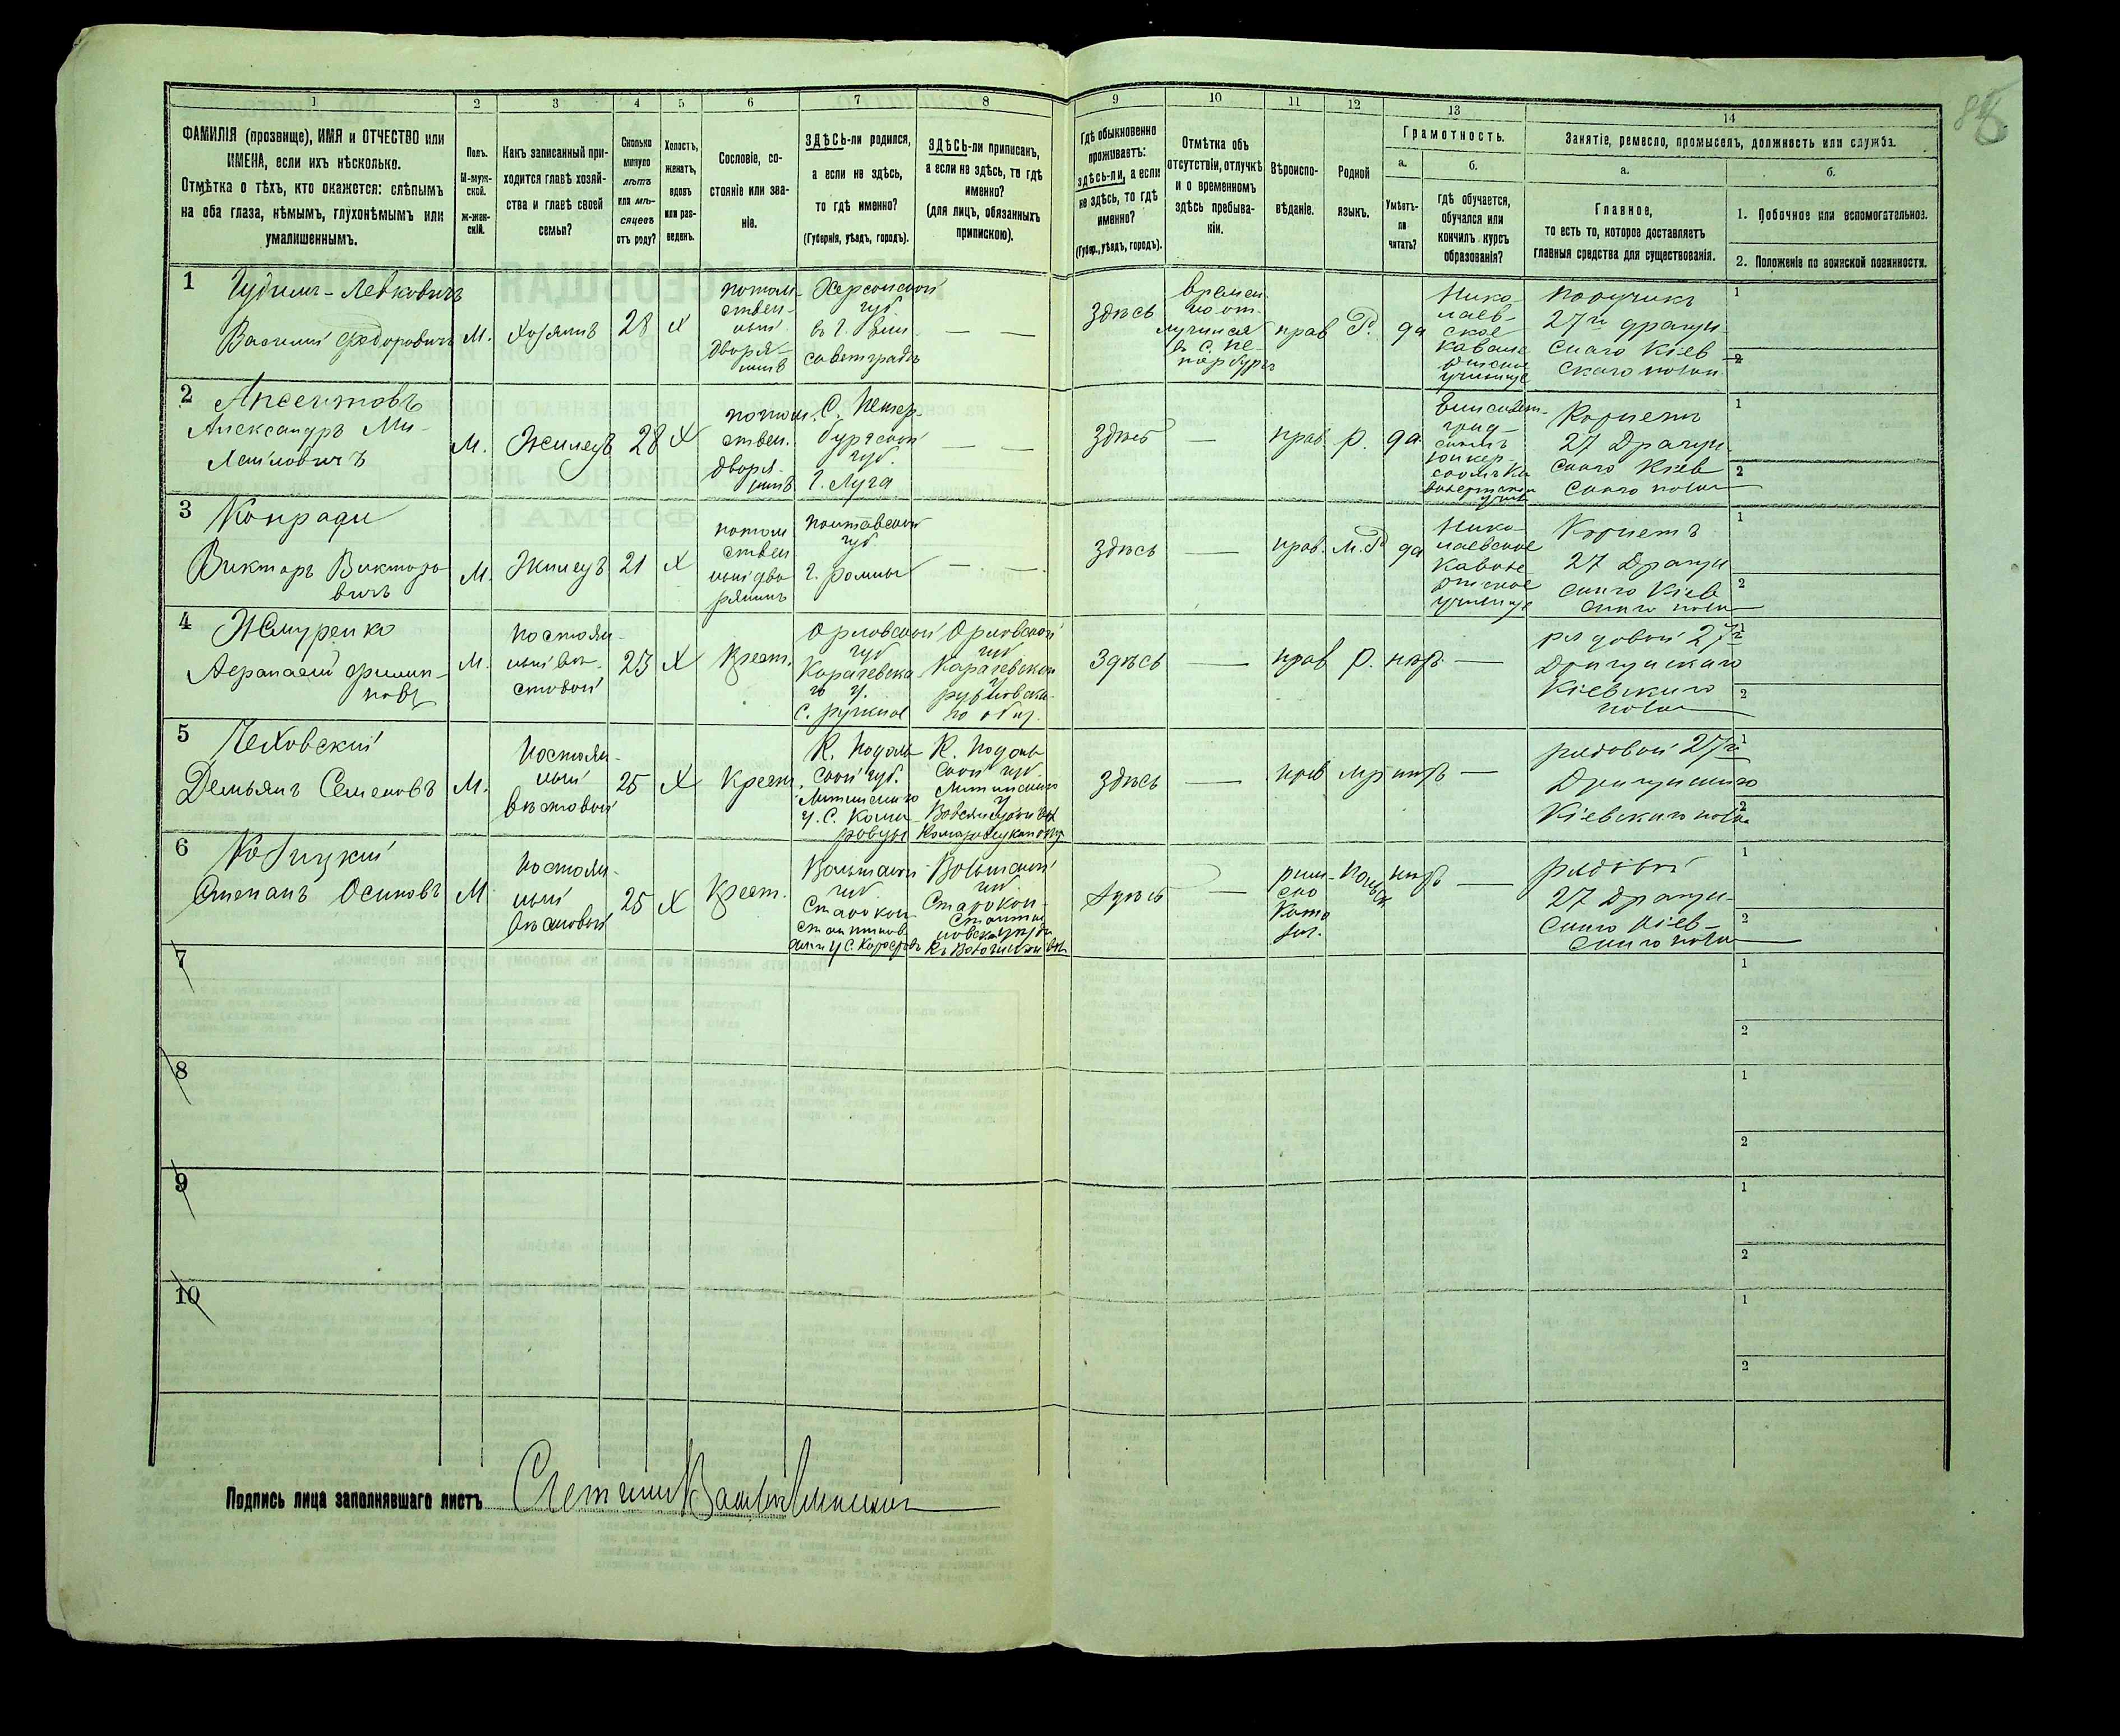 1 2 3 4 5 6 7 8 9 10 11 12 13 14
ФАМИЛІЯ (прозвище), ИМЯ и ОТЧЕСТВО или
ИМЕНА, если ихъ нѣсколько.
Отмѣтка о тѣхъ, кто окажется: слѣпымъ
на оба глаза, нѣмымъ, глухонѣмымъ или
умалишеннымъ.
Полъ.
М-муж-
ской.
ж-жен-
скій.
Какъ записанный при-
ходится главѣ хозяй-
ства и главѣ своей
семьи?
Сколько
минуло
лѣтъ
или мѣ-
сяцевъ
отъ роду?
Холостъ,
женатъ,
вдовъ
или раз-
веденъ.
Сословіе, со-
стояніе или зва-
ніе.
ЗДѢСЬ-ли родился,
а если не здѣсь,
то гдѣ именно?
(Губернія, уѣздъ, городъ).
ЗДѢСЬ-ли приписанъ,
а если не здѣсь, то гдѣ
именно?
(для лицъ, обязанныхъ
припискою).
Гдѣ обыкновенно
проживаетъ:
здѣсь-ли, а если
не здѣсь, то гдѣ
именно?
(Губер., уѣздъ, городъ).
Отмѣтка объ
отсутствіи, отлучкѣ
и о временномъ
здѣсь пребыва-
ніи.
Вѣроиспо-
вѣданіе.
Родной
языкъ.
Грамотность.
а.
Умѣетъ-
ли
читать?
б.
гдѣ обучается,
обучался или
кончилъ курсъ
образованія?
Занятіе, ремесло, промыселъ, должность или служба.
а.
Главное,
то есть то, которое доставляетъ
главныя средства для существованія.
б.
1. Побочное или вспомогательное.
2. Положеніе по воинской повинности.
1
Чудимъ-Левковичъ
Василій Федоровичъ
М.
Хозяинъ
28
х
потом-
ствен-
ный
дворя-
нинъ
Херсонской
губ.
въ г. Ели-
саветградѣ
— —
Здѣсь
времен-
но от-
лучился
въ С. Пе-
тербургъ
прав
Р.
да
Нико-
лаев-
ское
кавале-
рійское
училище
Поручикъ
27го драгун-
скаго Кіев-
скаго полка
1
2
2
Аксентовъ
Александръ Ми-
хайловичъ
М.
Жилецъ
28
Х
потом.
ствен.
дворя-
нинъ
С. Петер-
бургской
губ.
г. Луга
— —
Здѣсь
—
прав.
р.
да
Елисавет-
град-
скомъ
юнкер-
Корнетъ
27 Драгун-
скаго Кіев-
скаго полка
1
2
3
Конради
Викторъ Викторо-
вичъ
М.
Жилецъ
21
х
потом
ствен
ный дво
рянинъ
Полтавской
губ.
г. Ромны
— —
Здѣсь
—
прав.
М.Р
да
Нико-
лаевское
Кавале-
рійское
училище
Корнетъ
27 Драгун
скаго Кіев
скаго полка
1
2
4
Жмуренко
Афанасій Филип-
повъ
М.
Постоян-
ный вѣ-
стовой
23
Х
Крест.
Орловской
губ
Карачевска-
го у.
Орловской
губ
Карачевскаго
у.
Здѣсь
—
прав
р.
нѣтъ
—
рядовой 27го
Драгунскаго
Кіевскаго
полка
1
2
5
Чеховскій
Демьянъ Семеновъ
М.
Постоян-
ный
вѣстовой
25
Х
Крест.
К. Подоль-
ской губ.
Литинскаго
у. С. Кома-
ровцы
К. Подоль
ской губ.
Литинскаго
у.
Здѣсь
—
прав
мр
нѣтъ
—
рядовой 27го
Драгунскаго
Кіевскаго полка
1
2
6
Кобицкій
Степанъ Осиповъ
М
Постоян-
ный
вѣстовой
25
х
Крест.
Волынской
губ
Старокон-
стантинов-
Волынской
губ
Старокон-
стантин
Здѣсь
—
рим-
ско
Като
лич.
Польск
нѣтъ
—
рядовой
27 Драгун-
скаго Кіев-
скаго полка
1
2
7
1
2
8
1
2
9
1
2
10
1
2
Подпись лица заполнявшаго листъ